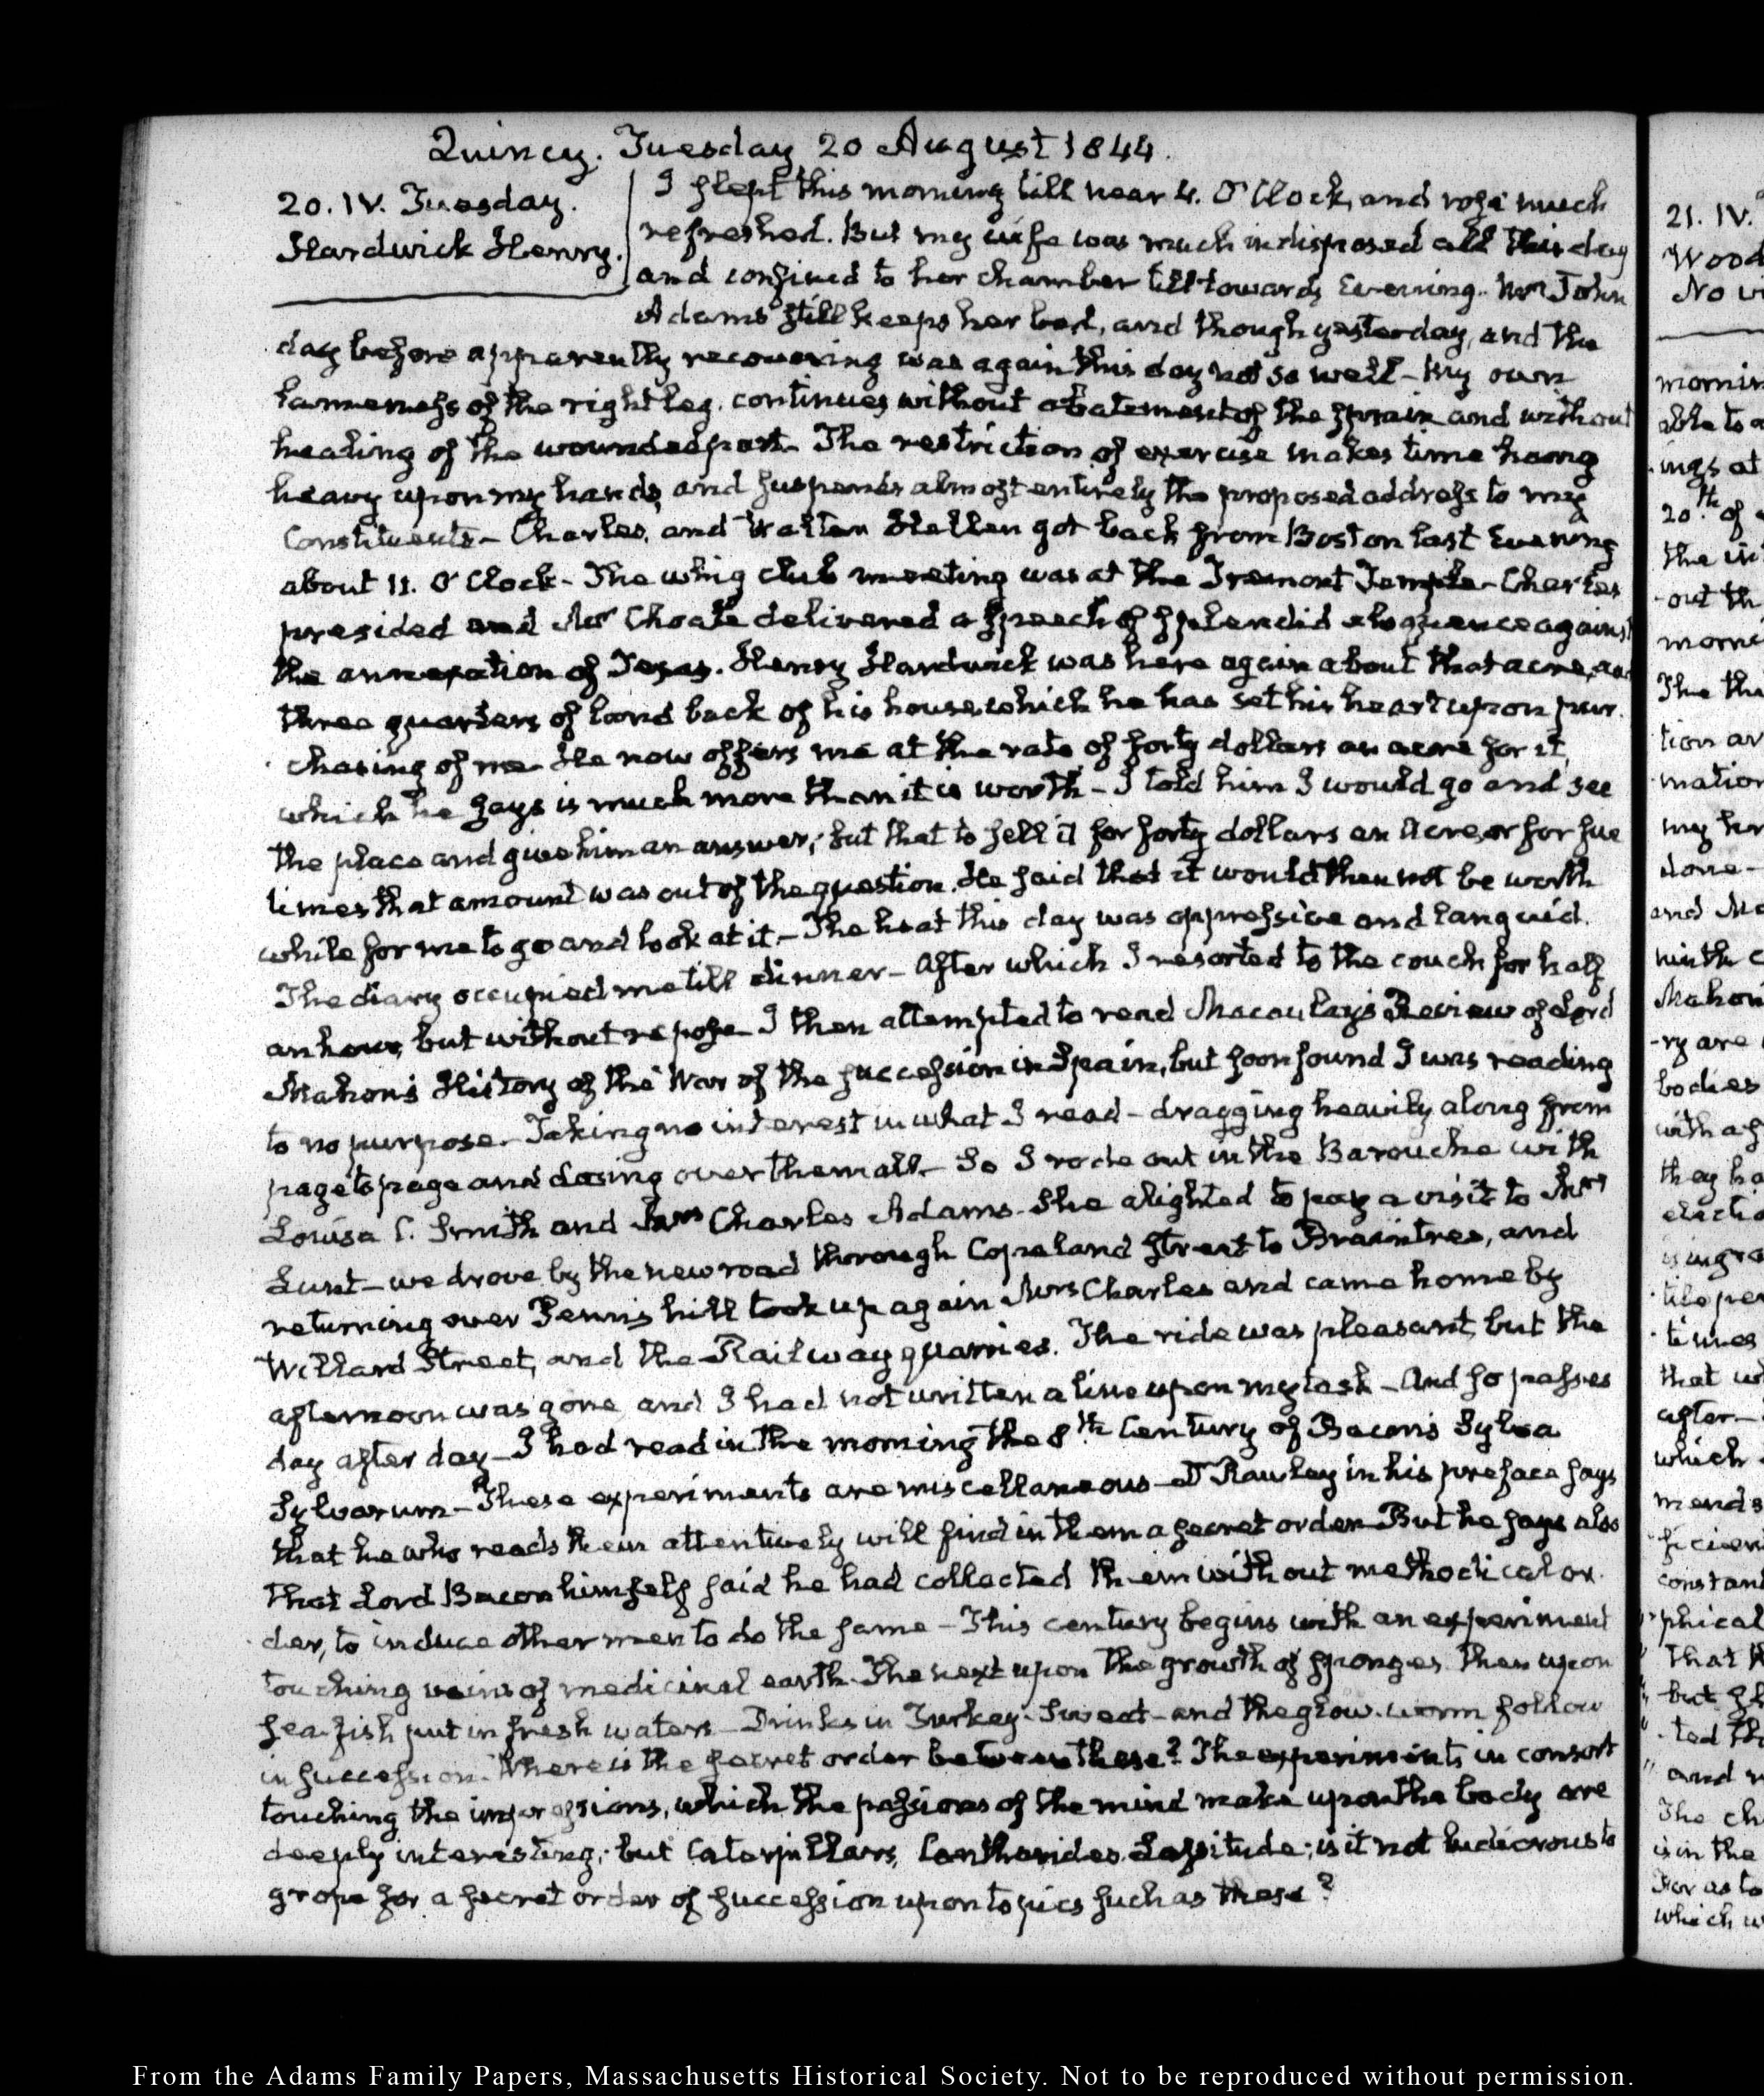 Quincy. Tuesday 20 August 1844.
20. IV. Tuesday.
Hardwick Henry.
I slept this morning till near 4. O'Clock, and rose much
refreshed. But my wife was much indisposed all this day
and confined to her chamber till towards Evening. Mrs John
Adams still keeps her bed, and though yesterday, and the
day before apparently recovering was again this day not so well – My own
lameness of the right leg, continues without abatement of the sprain and without
healing of the wounded part – The restriction of exercise makes time hang
heavy upon my hands, and suspends almost entirely the proposed address to my
Constituents – Charles, and Walter Hellen got back from Boston last Evening
about 11. O'Clock – The whig club meeting was at the Tremont Temple – Charles
presided and Mr Choate delivered a speech of splendid eloquence against
the annexation of Texas. Henry Hardwick was here again about that acre, and
three quarters of land back of his house, which he has set his heart upon pur-
chasing of me – He now offers me at the rate of forty dollars an acre for it,
which he says is much more than it is worth – I told him I would go and see
the place and give him an answer; but that to sell it for forty dollars an Acre, or for five
times that amount was out of the question. He said that it would then not be worth
while for me to go and look at it. – The heat this day was oppressive and languid.
The diary occupied me till dinner – After which I resorted to the couch for half
an hour, but without repose – I then attempted to read Macaulay's Review of Lord
Mahon's History of the War of the succession in Spain, but soon found I was reading
to no purpose – Taking no interest in what I read – dragging heavily along from
page to page and dosing over them all – So I rode out in the Barouche with
Louisa C. Smith and Mrs Charles Adams – She alighted to pay a visit to Mrs
Lunt – we drove by the new road thorough Copeland Street to Braintree, and
returning over Penn's hill took up again Mrs Charles and came home by
Willard Street, and the Railway quarries. The ride was pleasant, but the
afternoon was gone and I had not written a line upon my task – And so passes
day after day – I had read in the morning the 8th Century of Bacon's Sylva
Sylvarum – These experiments are miscellaneous – Dr Rawley in his preface says
that he who reads them attentively will find in them a secret order – But he says also
that Lord Bacon himself said he had collected them without methodical or-
der, to induce other men to do the same – This century begins with an experiment
touching veins of medicinal earth. The next upon the growth of sponges. Then upon
sea fish put in fresh waters – Drinks in Turkey – Sweat – and the glow-worm follow
in succession – Where is the secret order between these? The experiments in consort
touching the impressions, which the passions of the mind make upon the body are
deeply interesting; but Caterpillars, Cantharides, Lassitude; is it not ludicrous to
grope for a secret order of succession upon topics such as these?
21. IV.
From the Adams Family Papers, Massachusetts Historical Society. Not to be reproduced without permission.